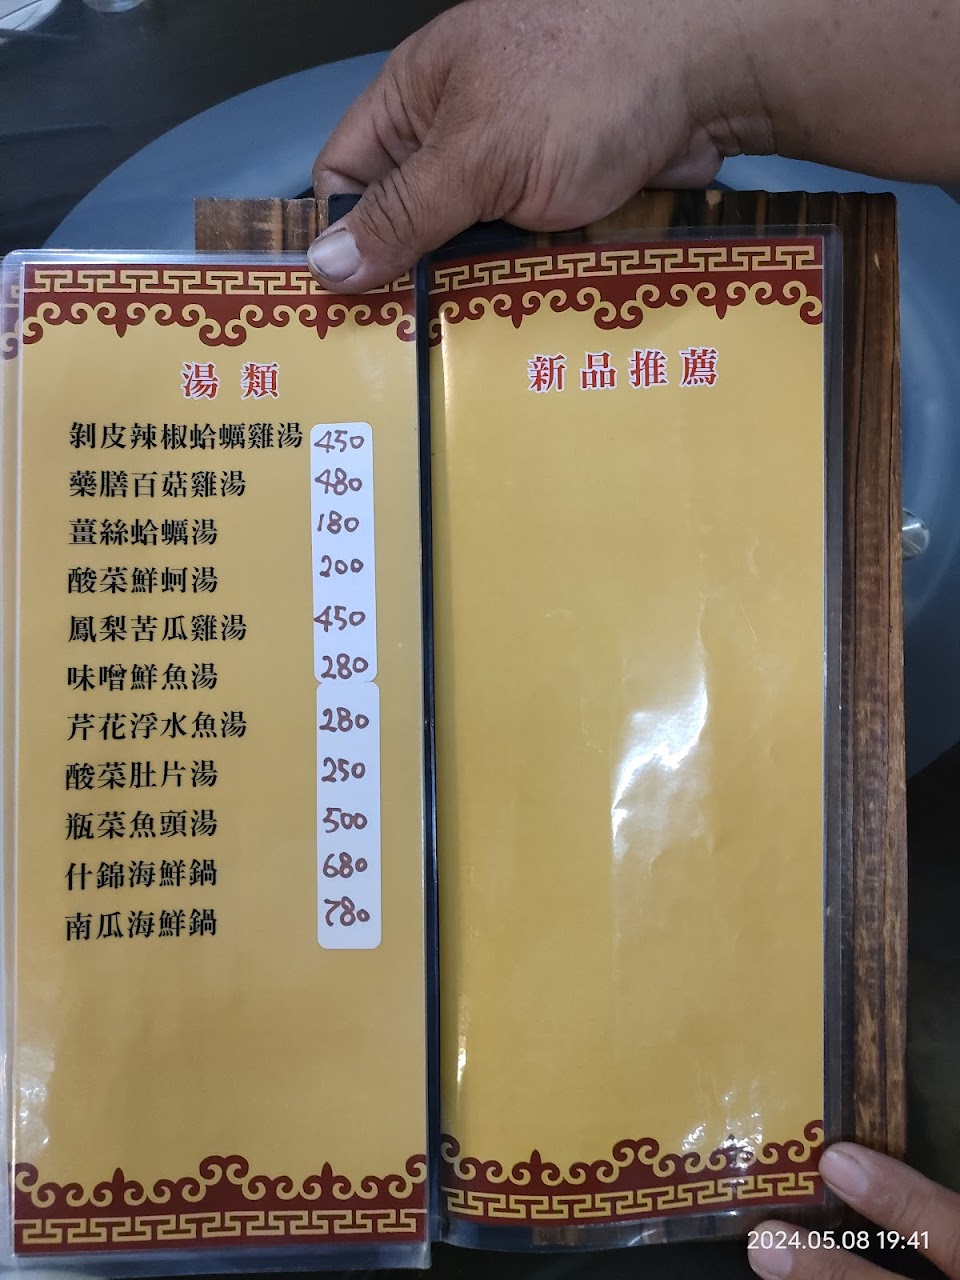 湯類
剝皮辣椒蛤蠣雞湯 450
藥膳百菇雞湯 480
薑絲蛤蠣湯 180
酸菜鮮蚵湯 200
鳳梨苦瓜雞湯 450
味噌鮮魚湯 280
芹花浮水魚湯 280
酸菜肚片湯 250
瓶菜魚頭湯 500
什錦海鮮鍋 680
南瓜海鮮鍋 780
新品推薦
2024.05.08 19:41